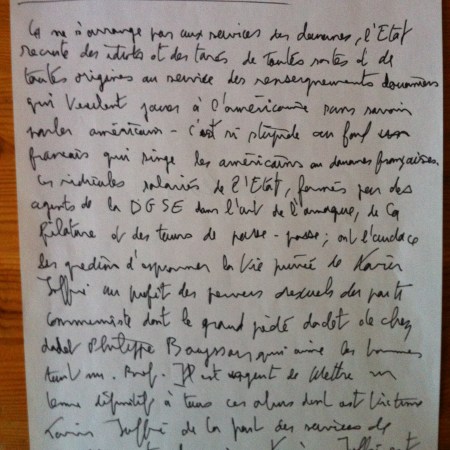 Ça ne s'arrange pas aux services des douanes, l'Etat
recrute des idiots et des tarés de toutes sortes et de
toutes origines au service des renseignements douaniers
qui veulent jouer à l'américaine sans savoir
parler américain - c'est si stupide au fond un
français qui singe les américains au douanes françaises.
Ces ridicules salariés de l'Etat, formés par des
agents de la DGSE dans l'art de l'arnaque, de la
filature et des tours de passe-passe; ont l'audace
d'espionner la vie privée de Karin
au profit des pervers sexuels du parti
communiste dont le grand pédé dadet de chez
dadet Philippe qui aime les hommes
Bref. Il est urgent de mettre un
terme définitif à tous ces abus dont est victime
Karin de la part des services de